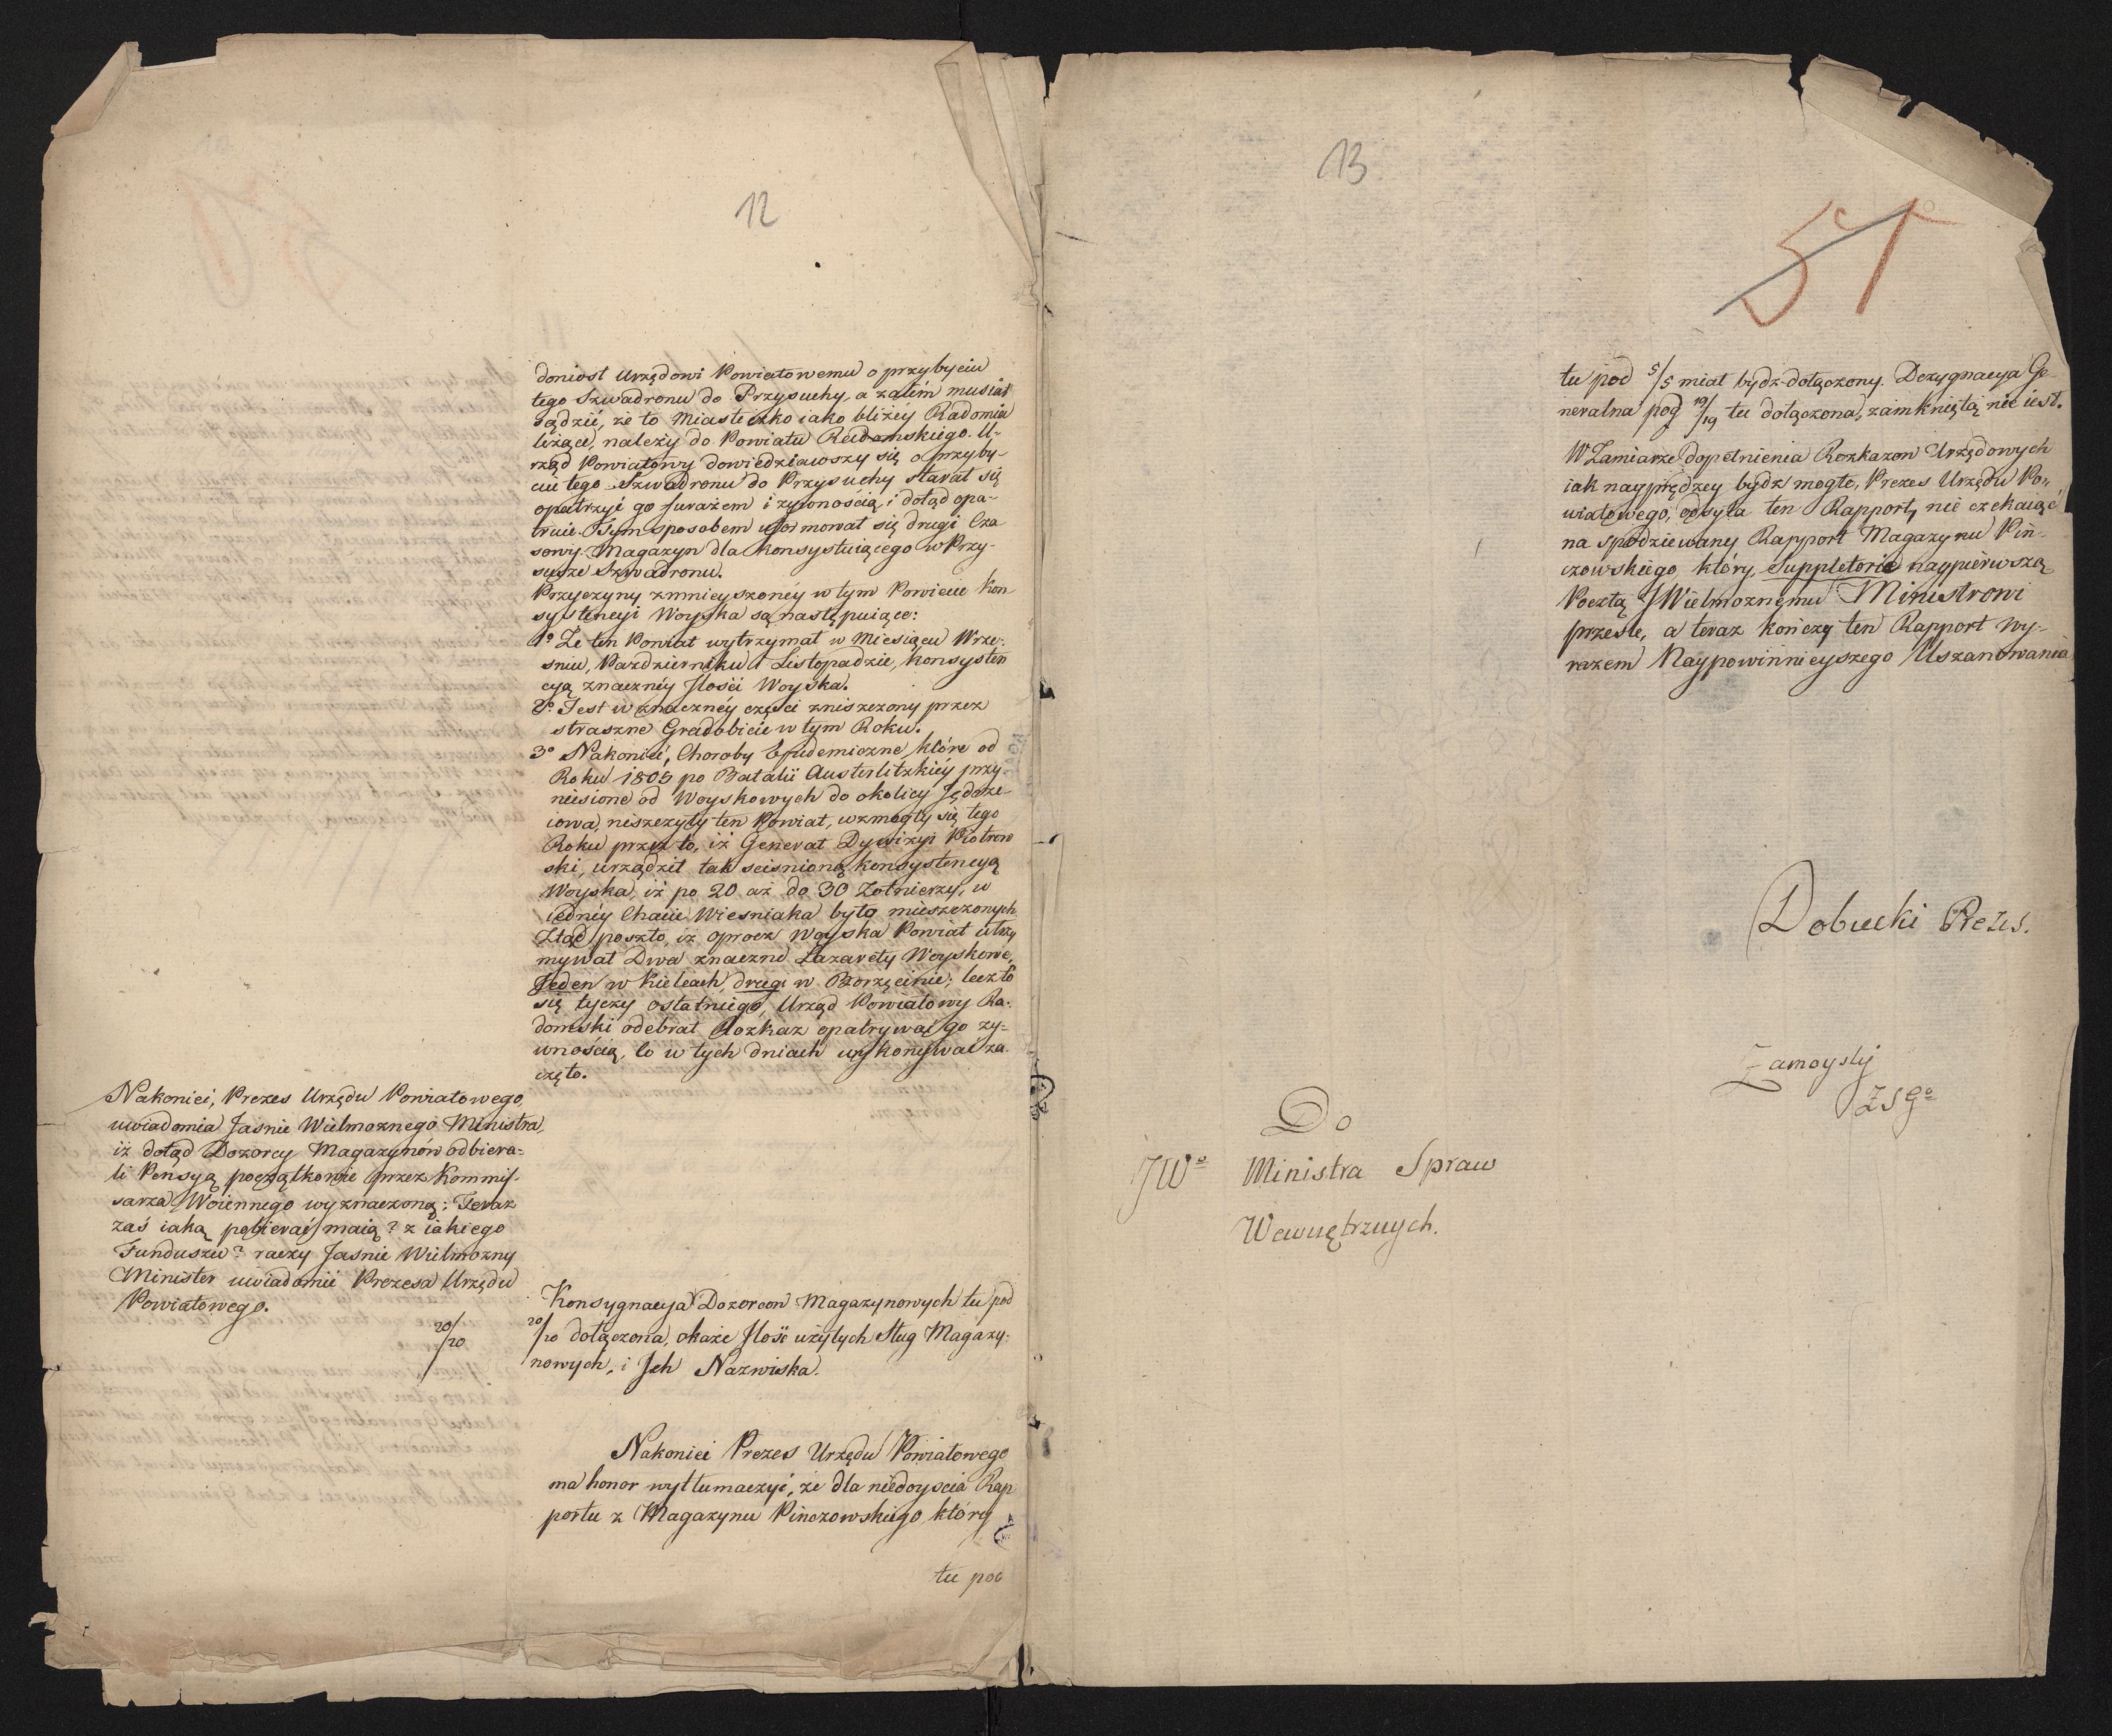 12
doniosł Urzędowi Powiatowemu o przybyciu
tego Szwadronu do Przysuchy, a zatém musiał
sądzić, że to Miasteczko iako bliżey Radomia
leżące, należy do Powiatu Radomskiego. U-
rząd Powiatowy dowiedziawszy się o przyby-
ciu tego Szwadronu do Przysuchy starał się
opatrzyć go furażem i żywnością i dotąd opa-
truie. Tym sposobem uformował się drugi Cza
sowy Magazyn dla konsystuiącego w Przy-
susze Szwadronu.
Przyczyny zmnieyszonéy w tym Powiecie Kon
systencyi Woyska są następuiące:
1º Że ten Powiat wytrzymał w Miesiącu Wrze-
śniu, Październiku i Listopadzie, konsysten
cyą znacznéy Ilości Woyska.
2º Jest w znacznéy części zniszczony przez
straszne Gradobicie w tym Roku.
3º Nakoniec, Choroby Epidemiczne które od
Roku 1805 po Batalii Austerlitzkiéy przy-
niesione od Woyskowych do okolicy Jędrze-
iowa, niszczyły ten Powiat, wzmogły się tego
Roku przez to, iż Generał Dywizyi Piotrow
ski, urządził tak scisnioną konsystencyą
Woyska, iż po 20 aż do 30 Żołnierzy, w
iednéy Chacie Wiesniaka było mieszczonych
Ztąd poszło, iż oprocz Woyska Powiat utrzy
mywał Dwa znaczne Lazarety Woyskowe,
Jeden w Kielcach, drugi w Borzęcinie; lecz to
się tyczy ostatniego, Urząd Powiatowy Ra-
domski odebrał Rozkaz opatrywać go ży-
wnością, co w tych dniach wykonywać za
częto.
Nakoniec, Prezes Urzędu Powiatowego,
uwiadomia Jasnie Wielmoznego Ministra,
iż dotąd Dozorcy Magazynów odbiera-
li Pensyą początkowie przez Kommis-
sarza Woiennego wyznaczoną; Teraz
zaś iaką pobierać maią? z iakiego
Funduszu? raczy Jasnie Wielmozny
Minister uwiadomić Prezesa Urzędu
Powiatowego.
20/20
Konsygnacya Dozorcow Magazynowych tu pod
20/20 dołączona, okaże Ilość użytych Sług Magazy-
nowych, i Ich Nazwiska.
Nakoniec Prezes Urzędu Powiatowego
ma honor wytłumaczyć, że dla niedoyscia Rap
portu z Magazynu Pinczowskiego, który
tu pod
13
51
tu pod 5/5 miał bydz dołączony. Dezygnacya Ge-
neralna pod 19/19 tu dołączona, zamkniętą nie iest.
W Zamiarze dopełnienia Rozkazow Urzędowych
iak nayprędzey bydz mogłe, Prezes Urzędu Po-
wiatowego, odsyła ten Rapport, nie czekaiąc
na spodziewany Rapport Magazynu Pin-
czowskiego który, Suppletorie naypierwszą
Pocztą JWielmoznemu Ministrowi
przesle, a teraz kończy ten Rapport wy-
razem Naypowinnieyszego Uszanowania
Dobiecki Prezes.
Zamoyski
ZSGº
Do
JWº Ministra Spraw
Wewnętrznych.